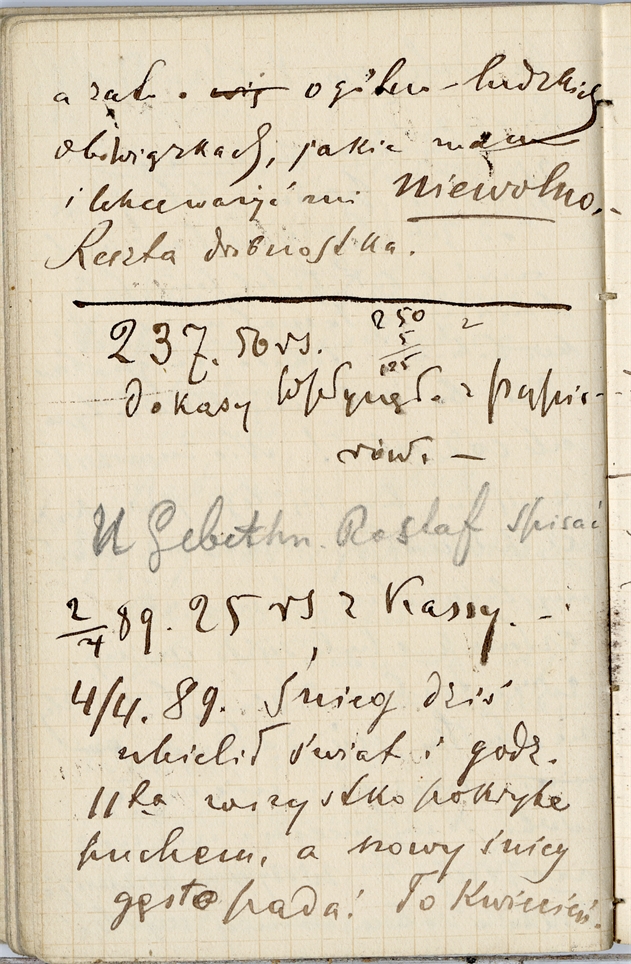 a zat. o ogóln-ludzkich
obowiązkach, jakie mam
i lekceważyć mi niewolno.-
Reszta drobnostka.
237.50 rs.
250 2
5
125
do kasy wpłynęł. z papie-
rów. —
U Gebethn. Rostaf spisać
2/4 89. 25 rs z Kassy. -
4/4. 89. Śnieg dziś
ubielił świat i godz.
11ta wszystko pokryte
puchem, a nowy śnieg
gęsto pada! To Kwiecień.